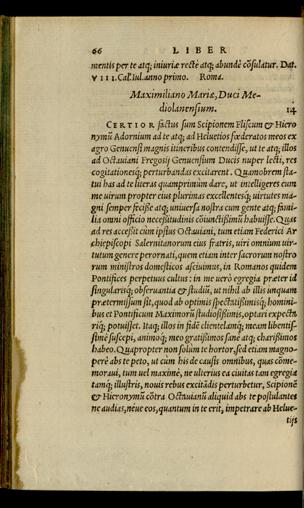 66 LIBER
mentis per te atq; iniuriæ rectè atq; abundè cõsulatur. Dat.
VIII. Cal. Iul. anno primo. Roma.
Maximiliano Mariæ, Duci Me-
diolanensium. 14
CERTIOR factus sum Scipionem Fliscum & Hiero
nymũ Adornium ad te atq; ad Heluetios fœderatos meos ex
agro Genuensi magnis itineribus contendisse, ut te atq; illos
ad Octauiani Fregosij Genuensium Ducis nuper lecti, res
cogitationesq; perturbandas excitarent. Quamobrem sta-
tui has ad te literas quamprimùm dare, ut intelligeres cum
me uirum propter eius plurimas excellentesq; uirtutes ma-
gni semper fecisse, tum
uniuersa nostra cum gente atq; fami-
lia omni officio necessitudinis cõiunctissimũ habuisse. Quas
ad res accessit cùm ipsius Octauiani, tum etiam Federici Ar
chiepiscopi Salernitanorum eius fratris, uiri omnium uir-
tutum genere perornati, quem etiam inter sacrorum nostro
rum ministros domesticos asciuimus, in Romanos quidem
Pontifices perpetuus cultus: in me uerò egregia præter id
singularisq; obseruantia & studiũ, ut nihil ab illis unquam
prætermissum sit, quod ab optimis spectatissimisq; homini-
bus et Pontificum Maximorũ studiosissimis, optari expectã
riq; potuisset. Itaq; illos in fidẽ clientelamq; meam libentis-
simè suscepi, animoq; meo gratissimos sanè atq; charissimos
habeo. Quapropter non solùm te hortor, sed etiam magno-
perè abs te peto, ut cùm his de causis omnibus, quas cõme-
moraui, tum uel maximè, ne ulterius ea ciuitas tam egregia
tamq; illustris, nouis rebus excitãdis perturbetur, Scipionẽ
& Hieronymũ cõtra Octauianũ aliquid abs te postulantes
ne audias, néue eos, quantum in te erit, impetrare ab Helue-
tijs